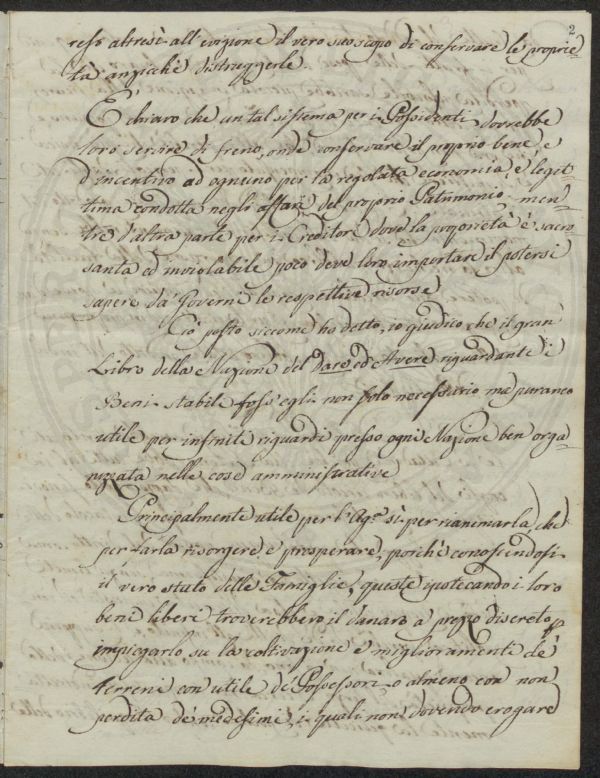 2
reso altresì all'evizione il vero suo scopo di conservare le proprie-
tà anzicchè distruggerle.
E' chiaro che un tal sistema per i Possidenti dovrebbe
loro servire di freno, onde conservare il proprio bene, e
d'incentivo ad ognuno per la regolata economia, e legit-
tima condotta negli affari del proprio Patrimonio, men-
tre d'altra parte per i Creditori dove la proprietà è sacro-
santa ed inviolabile poco deve loro importare il potersi
sapere da' Governi le respettive risorse
Ciò posto siccome ho detto, io giudico che il gran
Libro della Nazione del Dare ed Avere riguardante i
Beni stabile foss'egli non solo necessario ma puranco
utile per infiniti riguardi presso ogni Nazione ben orga-
nizzata nelle cose amministrative
Principalmente utile per l'Agra sì per rianimarla, che
per farla risorgere e prosperare, poichè conoscendosi
il vero stato delle Famiglie, queste ipotecando i loro
beni liberi troverebbero il danaro a prezzo discreto p
impiegarlo su la coltivazione e miglioramenti de'
terreni con utile de' Possessori, o almeno con non
perdita de' medesimi, i quali non dovendo erogare